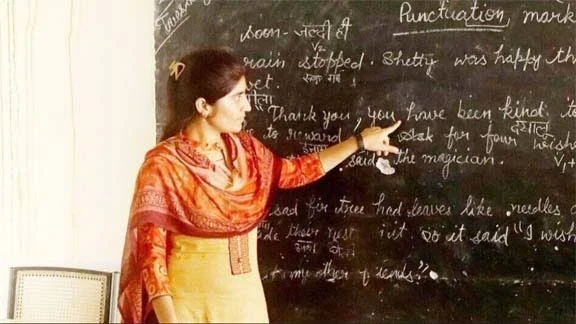 Punctuation mark
soon - जल्दी ही
V2
rain stopped. Shetty was happy th
रुक गई
wet.
गीला
Thank you, you have been kind, t
दयालु
to reward ask for four wishe
इनाम
said the magician.
V1+
sad fir tree had leaves like needles
their nest it. So it said "I wish
some other friends."